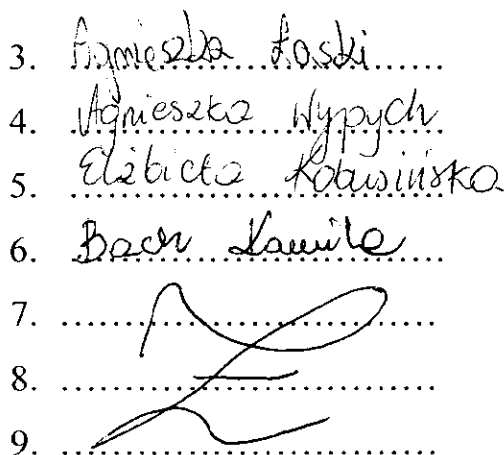 3. Agnieszka Łaski
4. Agnieszka Wypych
5. Elżbieta
6. Bach Kamila
7.
8.
9.